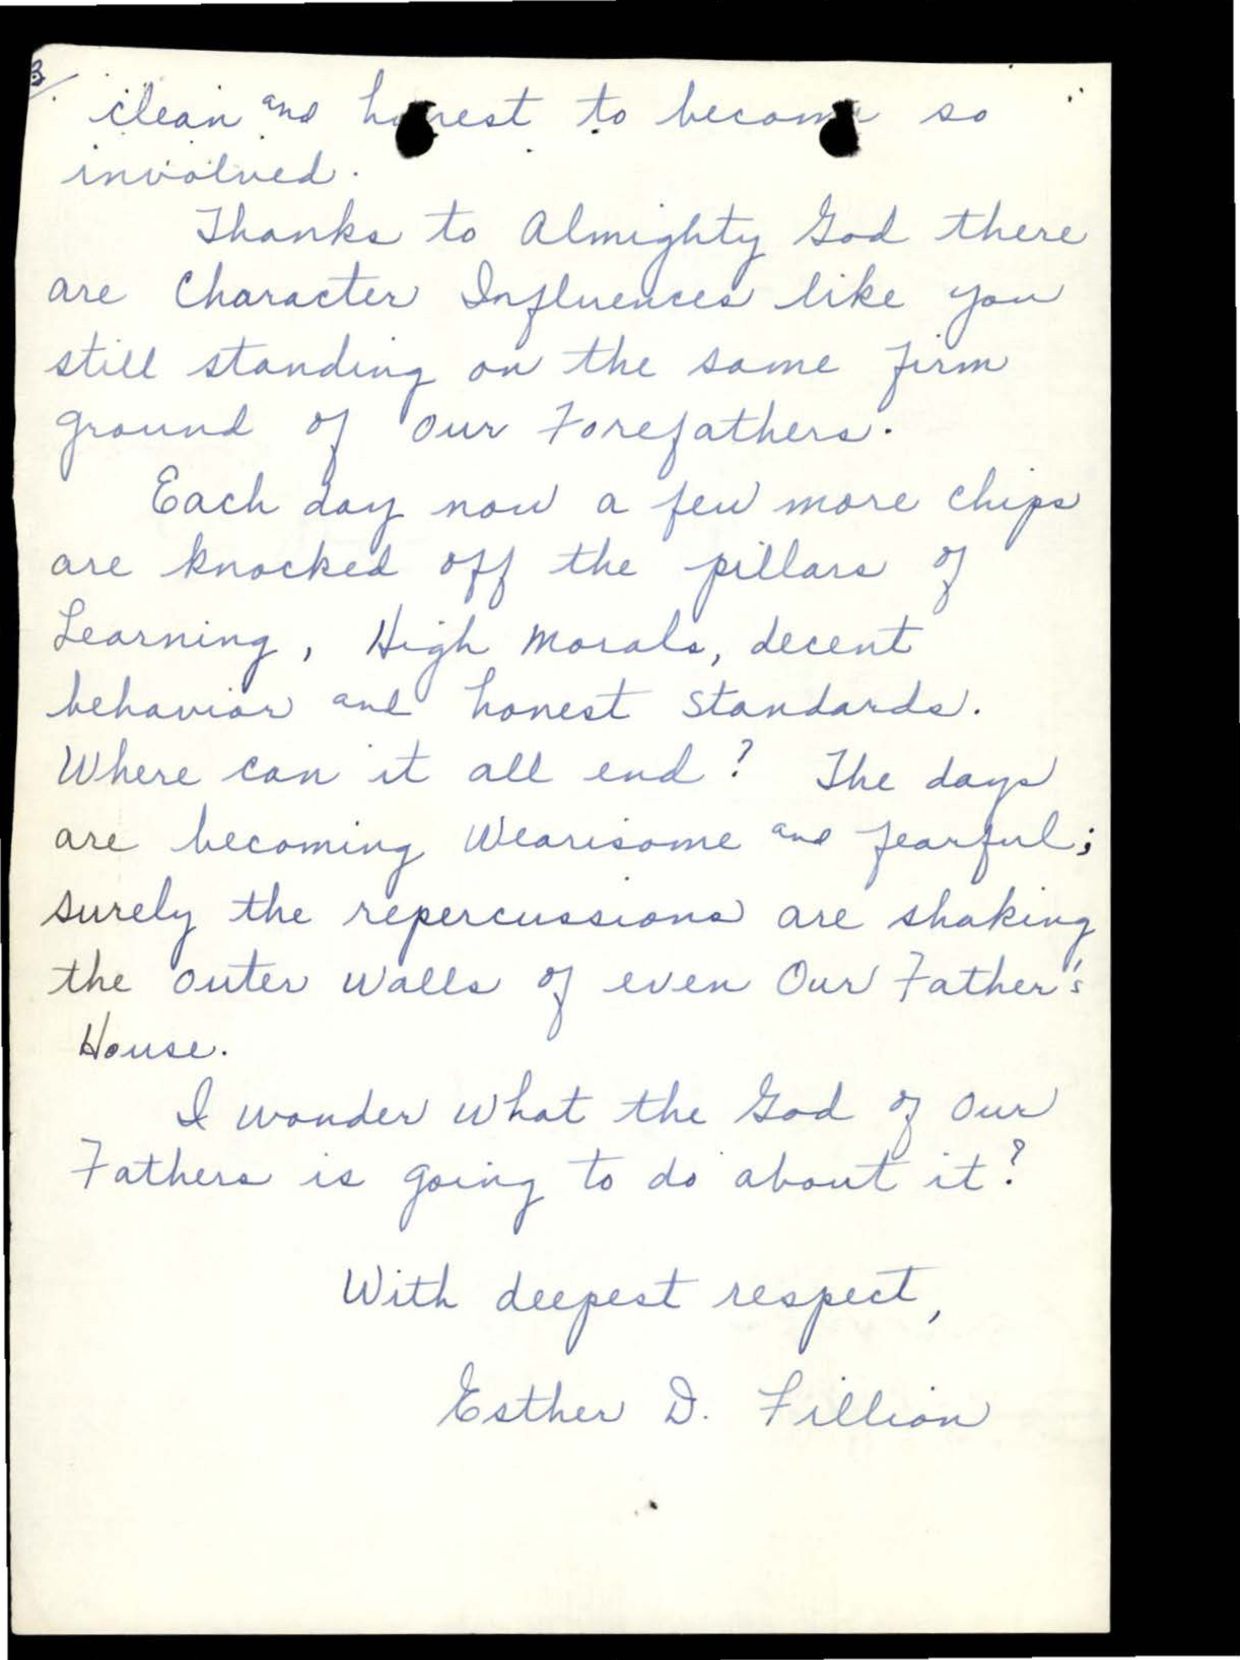 3/
clean and honest to become so
involved.
Thanks to Almighty God there
are Character Influences like you
still standing on the same firm
ground of our Forefathers.
Each day now a few more chips
are knocked off the pillars of
Learning, High Morals, decent
behavior and honest standards.
Where can it all end? The days
are becoming Wearisome and fearful;
surely the repercussions are shaking
the outer walls of even Our Father's
House.
I wonder what the God of Our
Fathers is going to do about it?
With deepest respect,
Esther D. Fillion